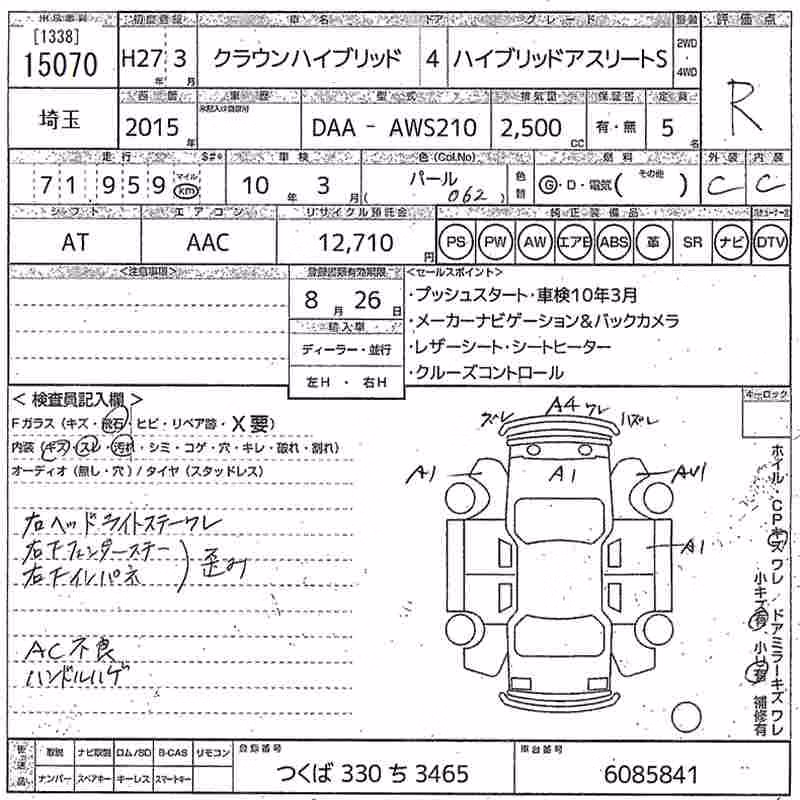 出品番号 初度登録 車名 ドア グレード 装備 評価点
[1338]
15070 H27年 3月 クラウンハイブリッド 4 ハイブリッドアスリートS 2WD・4WD R
埼玉
西暦 車歴 型式 排気量 保証書 定員
2015年 DAA - AWS210 2,500cc 有・無 5名
走行 車検 色(Col.No) 燃料 外装 内装
71959 マイル km 10年 3月 パール (062) 色替 G・D・電気( その他 ) C C
シフト エアコン リサイクル預託金 純正装備品
AT AAC 12,710円 PS PW AW エアB ABS 革 SR ナビ DTV
<注意事項> 登録書類有効期限 <セールスポイント>
8月 26日
・プッシュスタート・車検10年3月
・メーカーナビゲーション&バックカメラ
・レザーシート・シートヒーター
・クルーズコントロール
輸入車
ディーラー・並行
左H ・ 右H
< 検査員記入欄 >
Fガラス (キズ・飛石・ヒビ・リペア跡・X要)
内装 (キズ・スレ・汚れ・シミ・コゲ・穴・キレ・破れ・割れ)
オーディオ (無し・穴) / タイヤ (スタッドレス)
右ヘッドライトステーワレ
右Fフェンダーステー
右Fインパネ
歪み
AC不良
ハンドルハゲ
ズレ A4 ワレ ハズレ
A1 A1 AW1
A1
キーロック
ホイル・CPキズ ワレ ドアミラーキズ ワレ
小キズ有 小凹有 補修有
取説 ナビ取説 ロム/SD B-CAS リモコン
ナンバー スペアキー キーレス スマートキー
登録番号 車台番号
つくば 330 ち 3465 6085841